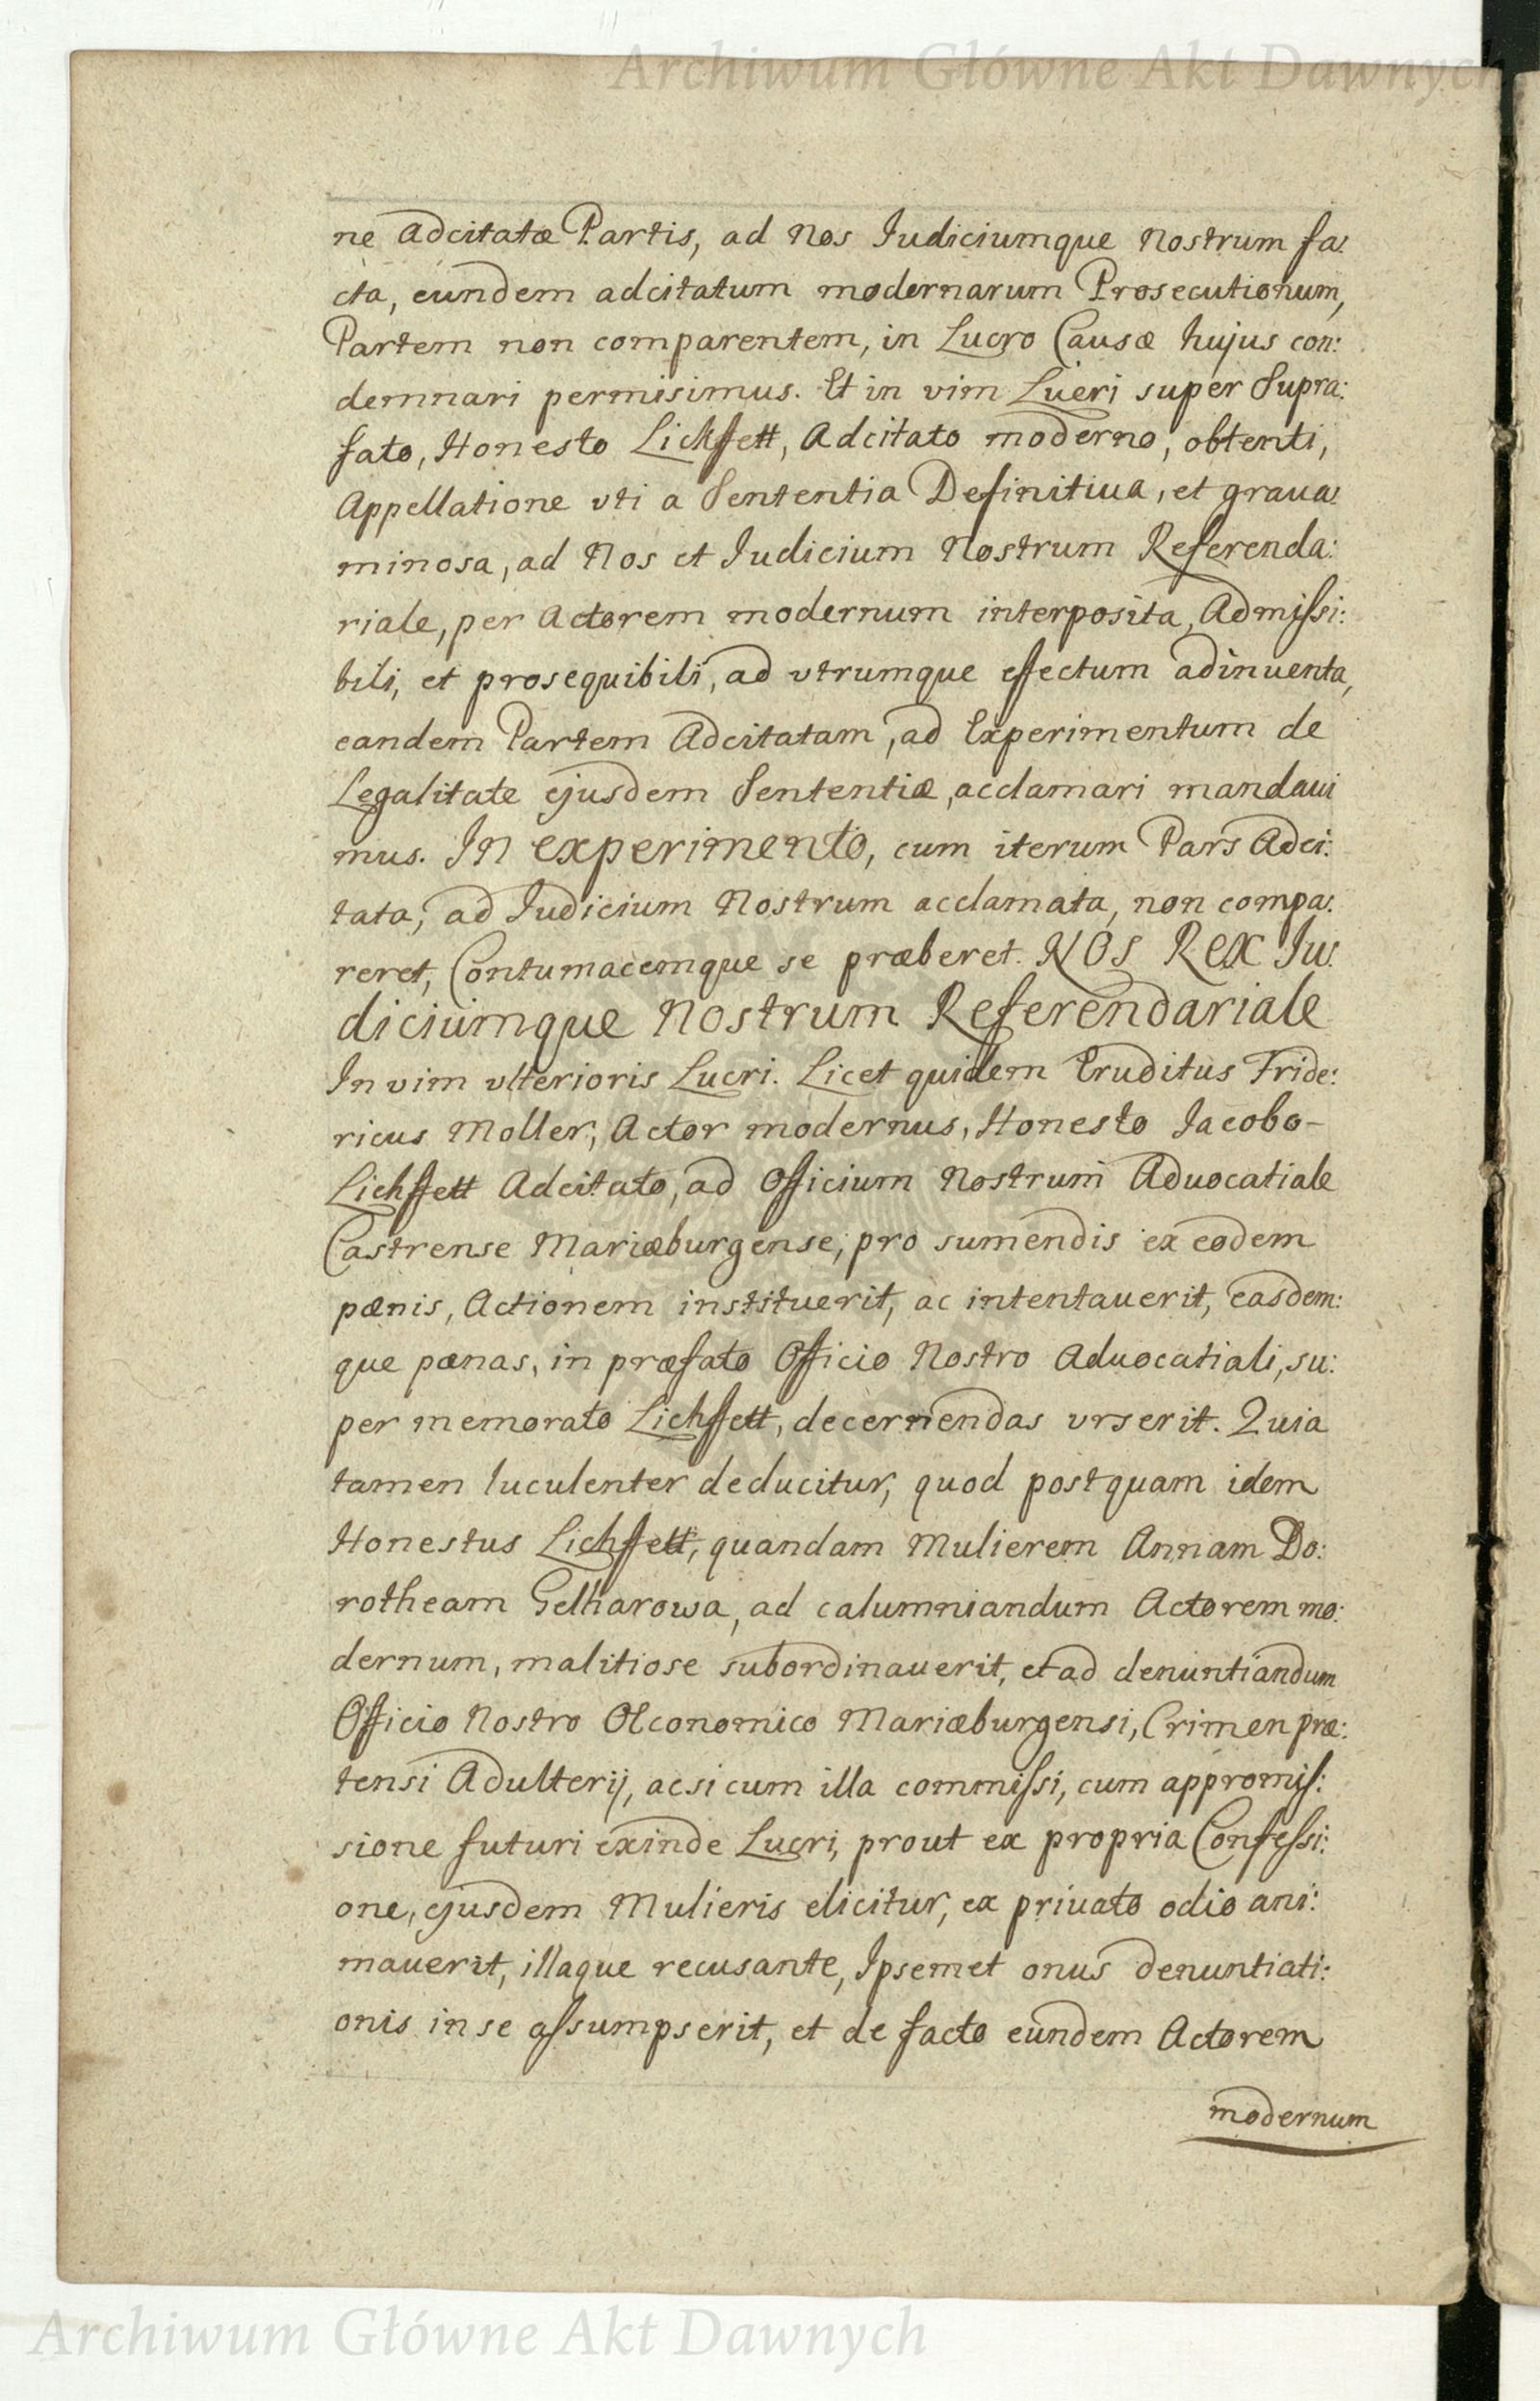 Archiwum Główne Akt Dawnych
ne Adcitatæ Partis, ad Nos Iudiciumque Nostrum fa:
cta, eundem adcitatum modernarum Prosecutionum,
Partem non comparentem, in Lucro Causæ hujus con:
demnari permisimus. Et in vim Lucri super Supra:
fato, Honesto Lichfett, Adcitato moderno, obtenti,
Appellatione vti a Sententia Definitiua, et graua:
minosa, ad Nos et Iudicium Nostrum Referenda:
riale, per Actorem modernum interposita, Admissi:
bili, et prosequibili, ad vtrumque effectum adinuenta,
eandem Partem Adcitatam, ad Experimentum de
Legalitate ejusdem Sententiæ, acclamari mandaui
mus. In experimento, cum iterum Pars Adci:
tata, ad Iudicium Nostrum acclamata, non compa:
reret, Contumacemque se præberet. NOS REX Iu:
diciumque Nostrum Referendariale
In vim vlterioris Lucri. Licet quidem Eruditus Fride:
ricus Moller, Actor modernus, Honesto Iacobo-
Lichffett Adcitato, ad Officium Nostrum Aduocatiale
Castrense Mariæburgense, pro sumendis ex eodem
pœnis, Actionem instituerit, ac intentauerit, easdem:
que pœnas, in præfato Officio Nostro Aduocatiali, su:
per memorato Lichffett, decernendas vrserit. Quia
tamen luculenter deducitur, quod postquam idem
Honestus Lichffett, quandam Mulierem Annam Do:
rotheam Gelharowa, ad calumniandum Actorem mo:
dernum, malitiose subordinauerit, et ad denuntiandum
Officio Nostro Œconomico Mariæburgensi, Crimen præ:
tensi Adulterij, acsi cum illa commissi, cum appromis:
sione futuri exinde Lucri, prout ex propria Confessi:
one, ejusdem Mulieris elicitur, ex priuato odio ani:
mauerit, illaque recusante, Ipsemet onus denuntiati:
onis in se assumpserit, et de facto eundem Actorem
modernum
Archiwum Główne Akt Dawnych